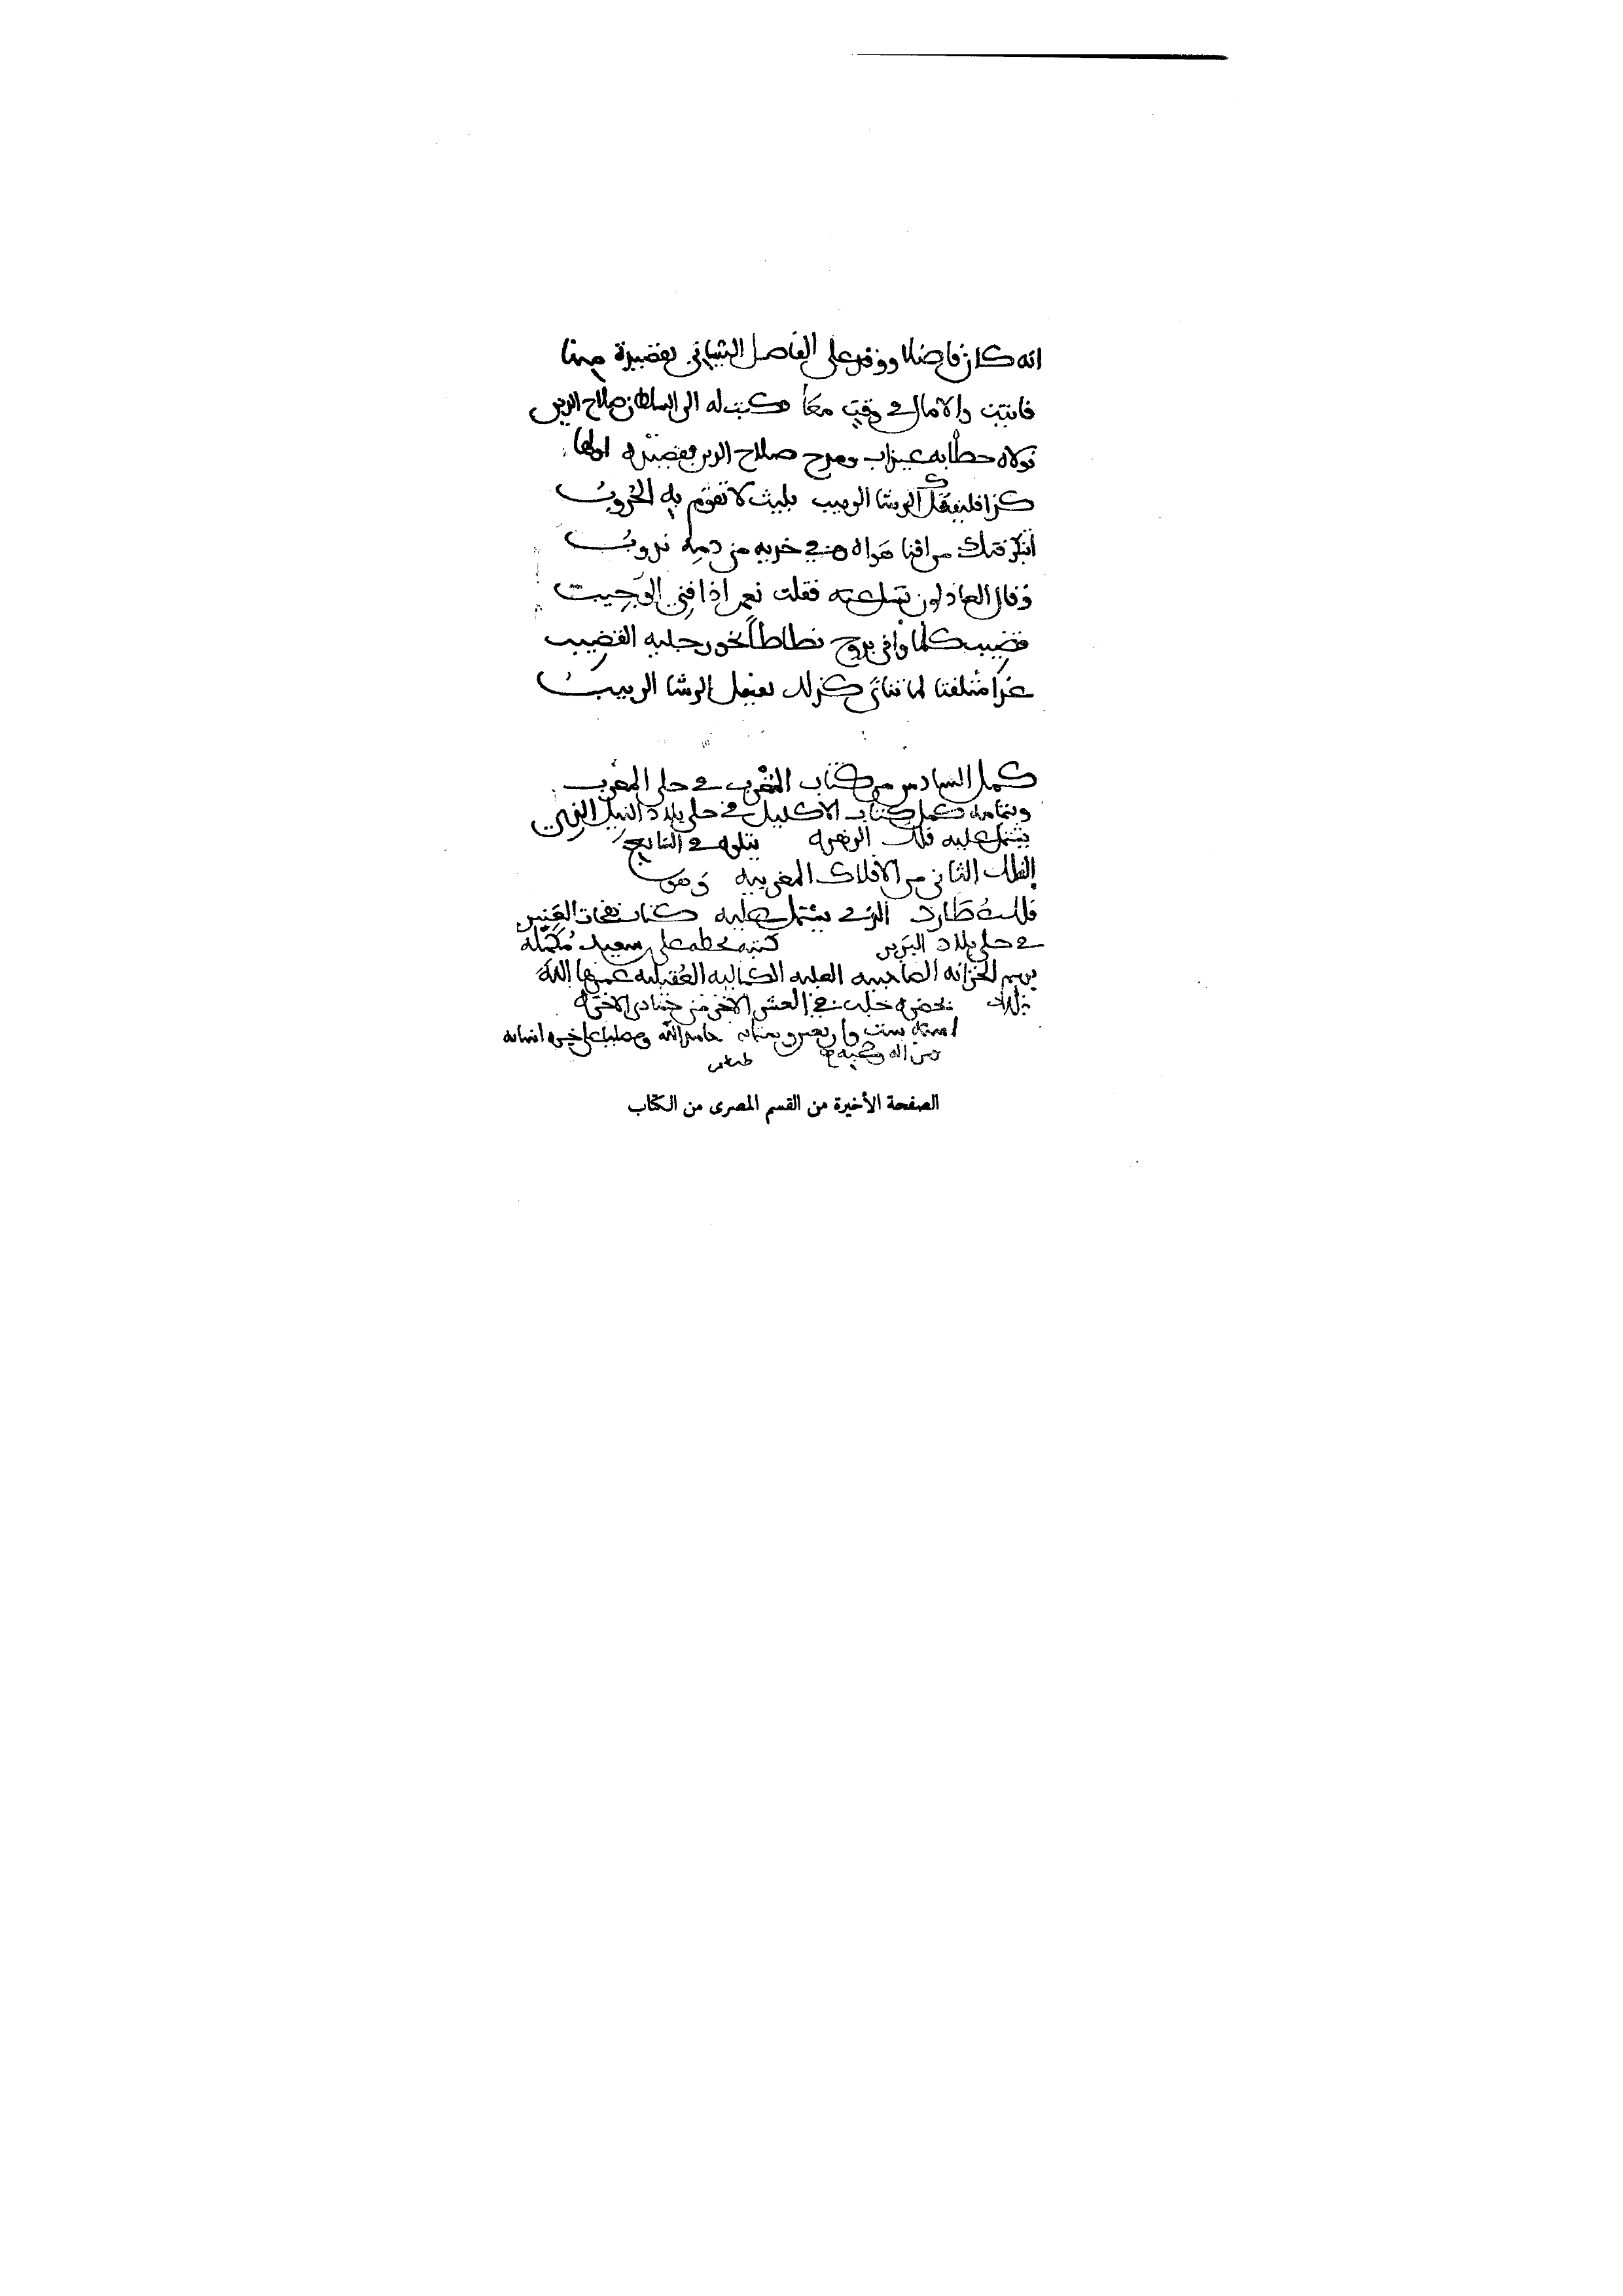 انه كان فاضلا ووفد على الفاضل البيسانى بقصيدة منها
فانتبت والامال فى وقت معا وكتب له الى السلطان صلاح الدين
فولاه خطابه عيذاب ومدح صلاح الدين بقصيده اولها
كذا فليفتك الرشا الربيب بليث لا تقوم به الحروب
أتنكر فتك من افنا هواه وفى خديه من دمه ندوب
وقال العاذلون تسل عنه فقلت نعم اذا فنى الوجيب
قضيب كلما وافى بروح تطاطأ نحو رجليه القضيب
غدا متلفتا لما تناءى كذلك يفعل الرشا الربيب
كمل السادس من كتاب المغرب فى حلى المغرب
وبتمامه كمل كتاب الاكليل فى حلى بلاد النيل الذى
يشتمل عليه فلك الزهره يتلوه فى السابع
الفلك الثانى من الافلاك المغربيه وهو
فلك عطارد الذى يشتمل عليه كتاب نفحات العنبر
فى حلى بلاد البربر كتبه بخطه على بن سعيد مكمله
برسم الخزانه الصاحبيه العليه الكماليه العقيليه عمرها الله
بحضره حلب فى العشر الاخر من جمادى الاخره
سنه سبع واربعين وستمايه حامدا لله ومصليا على خيره انبيائه
الصفحة الأخيرة من القسم المصرى من الكتاب